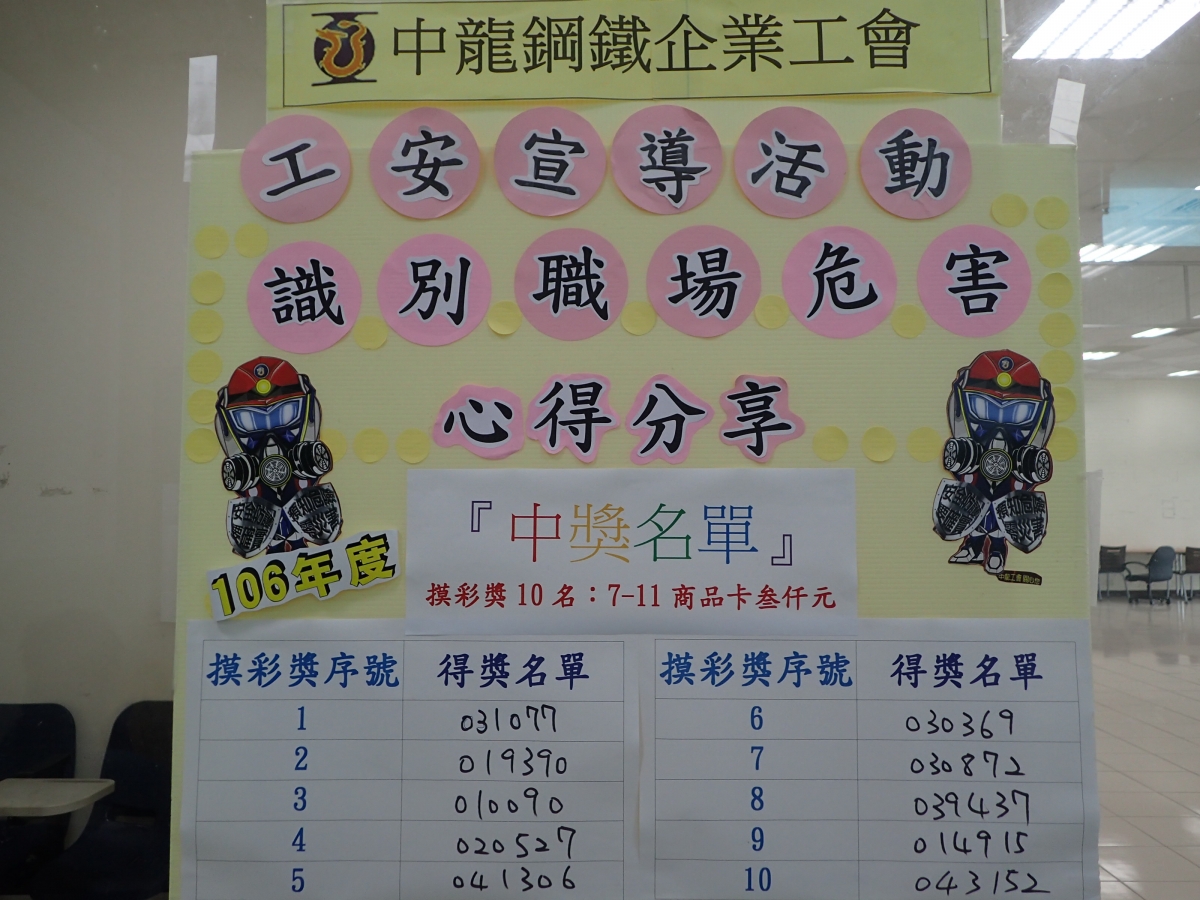 中龍鋼鐵企業工會
工安宣導活動
識別職場危害
心得分享
106年度
『中獎名單』
摸彩獎10名：7-11商品卡叁仟元
摸彩獎序號 得獎名單 摸彩獎序號 得獎名單
1 031077 6 030369
2 019390 7 030872
3 010090 8 039437
4 020527 9 014915
5 041306 10 043152